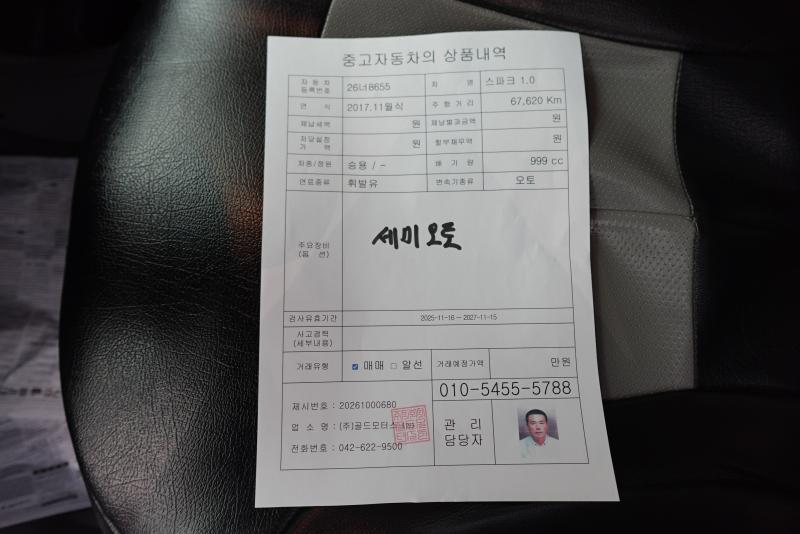 중고자동차의 상품내역
자동차등록번호 26너8655 차명 스파크 1.0
연식 2017.11월식 주행거리 67,620 Km
체납세액 원 체납별과금액 원
저당설정가액 원 할부채무액 원
차종/정원 승용 / - 배기량 999 cc
연료종류 휘발유 변속기종류 오토
주요장비(옵션) 세미오토
검사유효기간 2025-11-16 ~ 2027-11-15
사고경력(세부내용)
거래유형 ☑ 매매 □ 알선 거래예정가액 만원
010-5455-5788
제시번호 : 20261000680
업소명 : (주)골드모터스
전화번호 : 042-622-9500
관리담당자